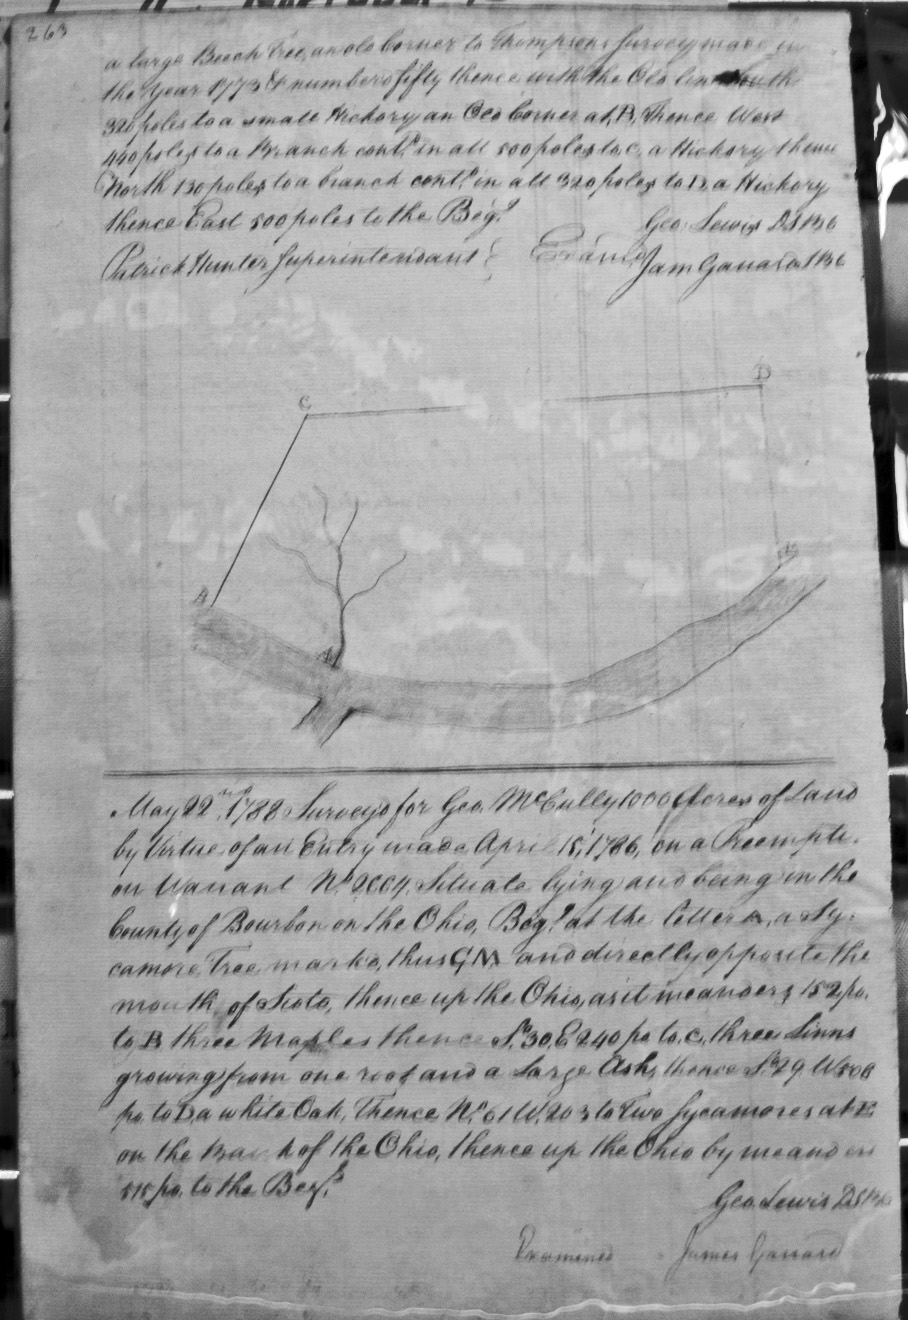 263
a large Beech Tree, an old Corner to Thompsons Survey made in
the Year 1773 & number fifty thence with the Old line South
320 poles to a small Hickory an Old Corner at B, Thence West
440 poles to a Branch cont.g in all 500 poles to C, a Hickory thence
North 130 poles to a branch cont.g in all 320 poles to D a Hickory
thence East 500 poles to the Beg.g
Geo. Lewis DSBC
Patrick Hunter Superintendant Exam.d
Jam Garrard SBC
C
D
A
A
B
May 22.nd 1788 Survey'd for Geo. McCully 1000 Acres of Land
by Virtue of an Entry made April 15, 1786, on a Preempti-
on Warrant No. 2004, Situate lying and being in the
County of Bourbon on the Ohio, Beg.g at the letter A, a Sy-
camore Tree mark'd, thus GM and directly opposite the
mouth of Sioto, thence up the Ohio, as it meanders 152 po.
to B three Maples thence S. 30, E 240 po to, C, three Linns
growing from one root and a Large Ash, thence S. 29 W 500
po to D, a white Oak, Thence N. 61 W, 203 to Two Sycamores at E
on the Bank of the Ohio, thence up the Ohio by meanders
515 po. to the Beg.g
Geo. Lewis DSBC
Examined James Garrard